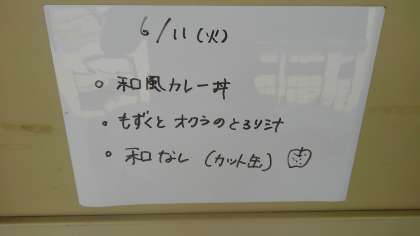 6/11(火)
○ 和風カレー丼
• もずくと オクラのとろり汁
• 和なし (カット缶)